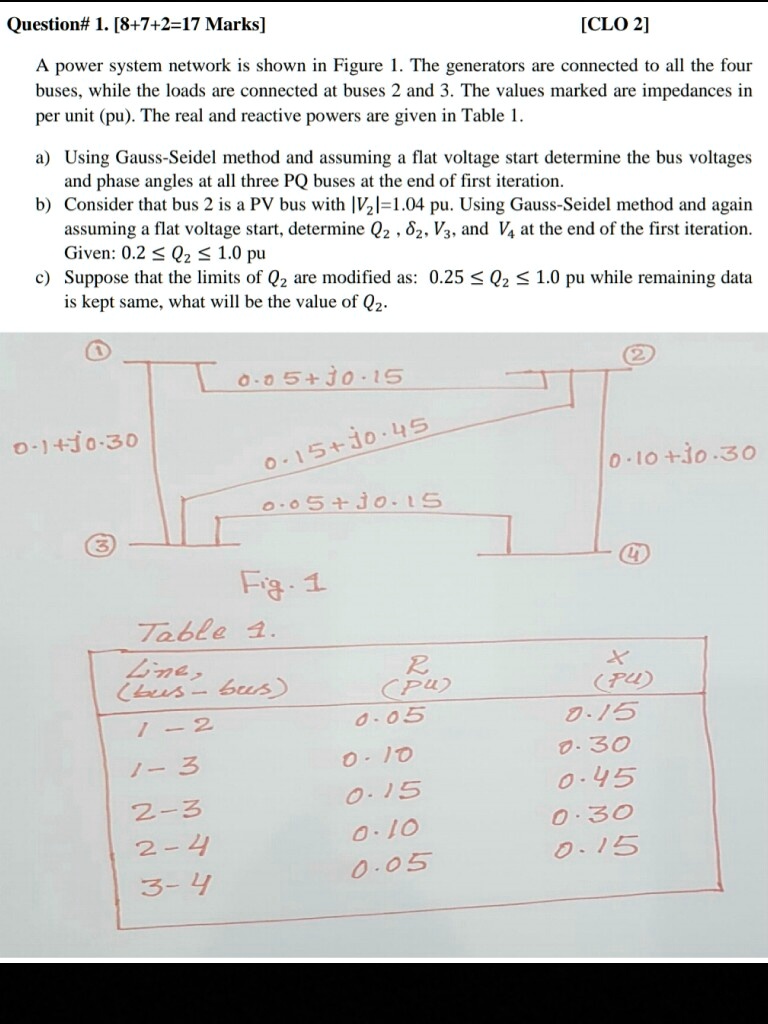 Question# 1. [8+7+2=17 Marks] [CLO 2]
A power system network is shown in Figure 1. The generators are connected to all the four
buses, while the loads are connected at buses 2 and 3. The values marked are impedances in
per unit (pu). The real and reactive powers are given in Table 1.
a) Using Gauss-Seidel method and assuming a flat voltage start determine the bus voltages
and phase angles at all three PQ buses at the end of first iteration.
b) Consider that bus 2 is a PV bus with |V₂|=1.04 pu. Using Gauss-Seidel method and again
assuming a flat voltage start, determine Q₂ , δ₂, V₃, and V₄ at the end of the first iteration.
Given: 0.2 ≤ Q₂ ≤ 1.0 pu
c) Suppose that the limits of Q₂ are modified as: 0.25 ≤ Q₂ ≤ 1.0 pu while remaining data
is kept same, what will be the value of Q₂.
① ②
0.05+j0.15
0.1+j0.30 0.15+j0.45 0.10+j0.30
0.05+j0.15
③ ④
Fig. 1
Table 1.
Line, R X
(bus-bus) (PU) (PU)
1-2 0.05 0.15
1-3 0.10 0.30
2-3 0.15 0.45
2-4 0.10 0.30
3-4 0.05 0.15